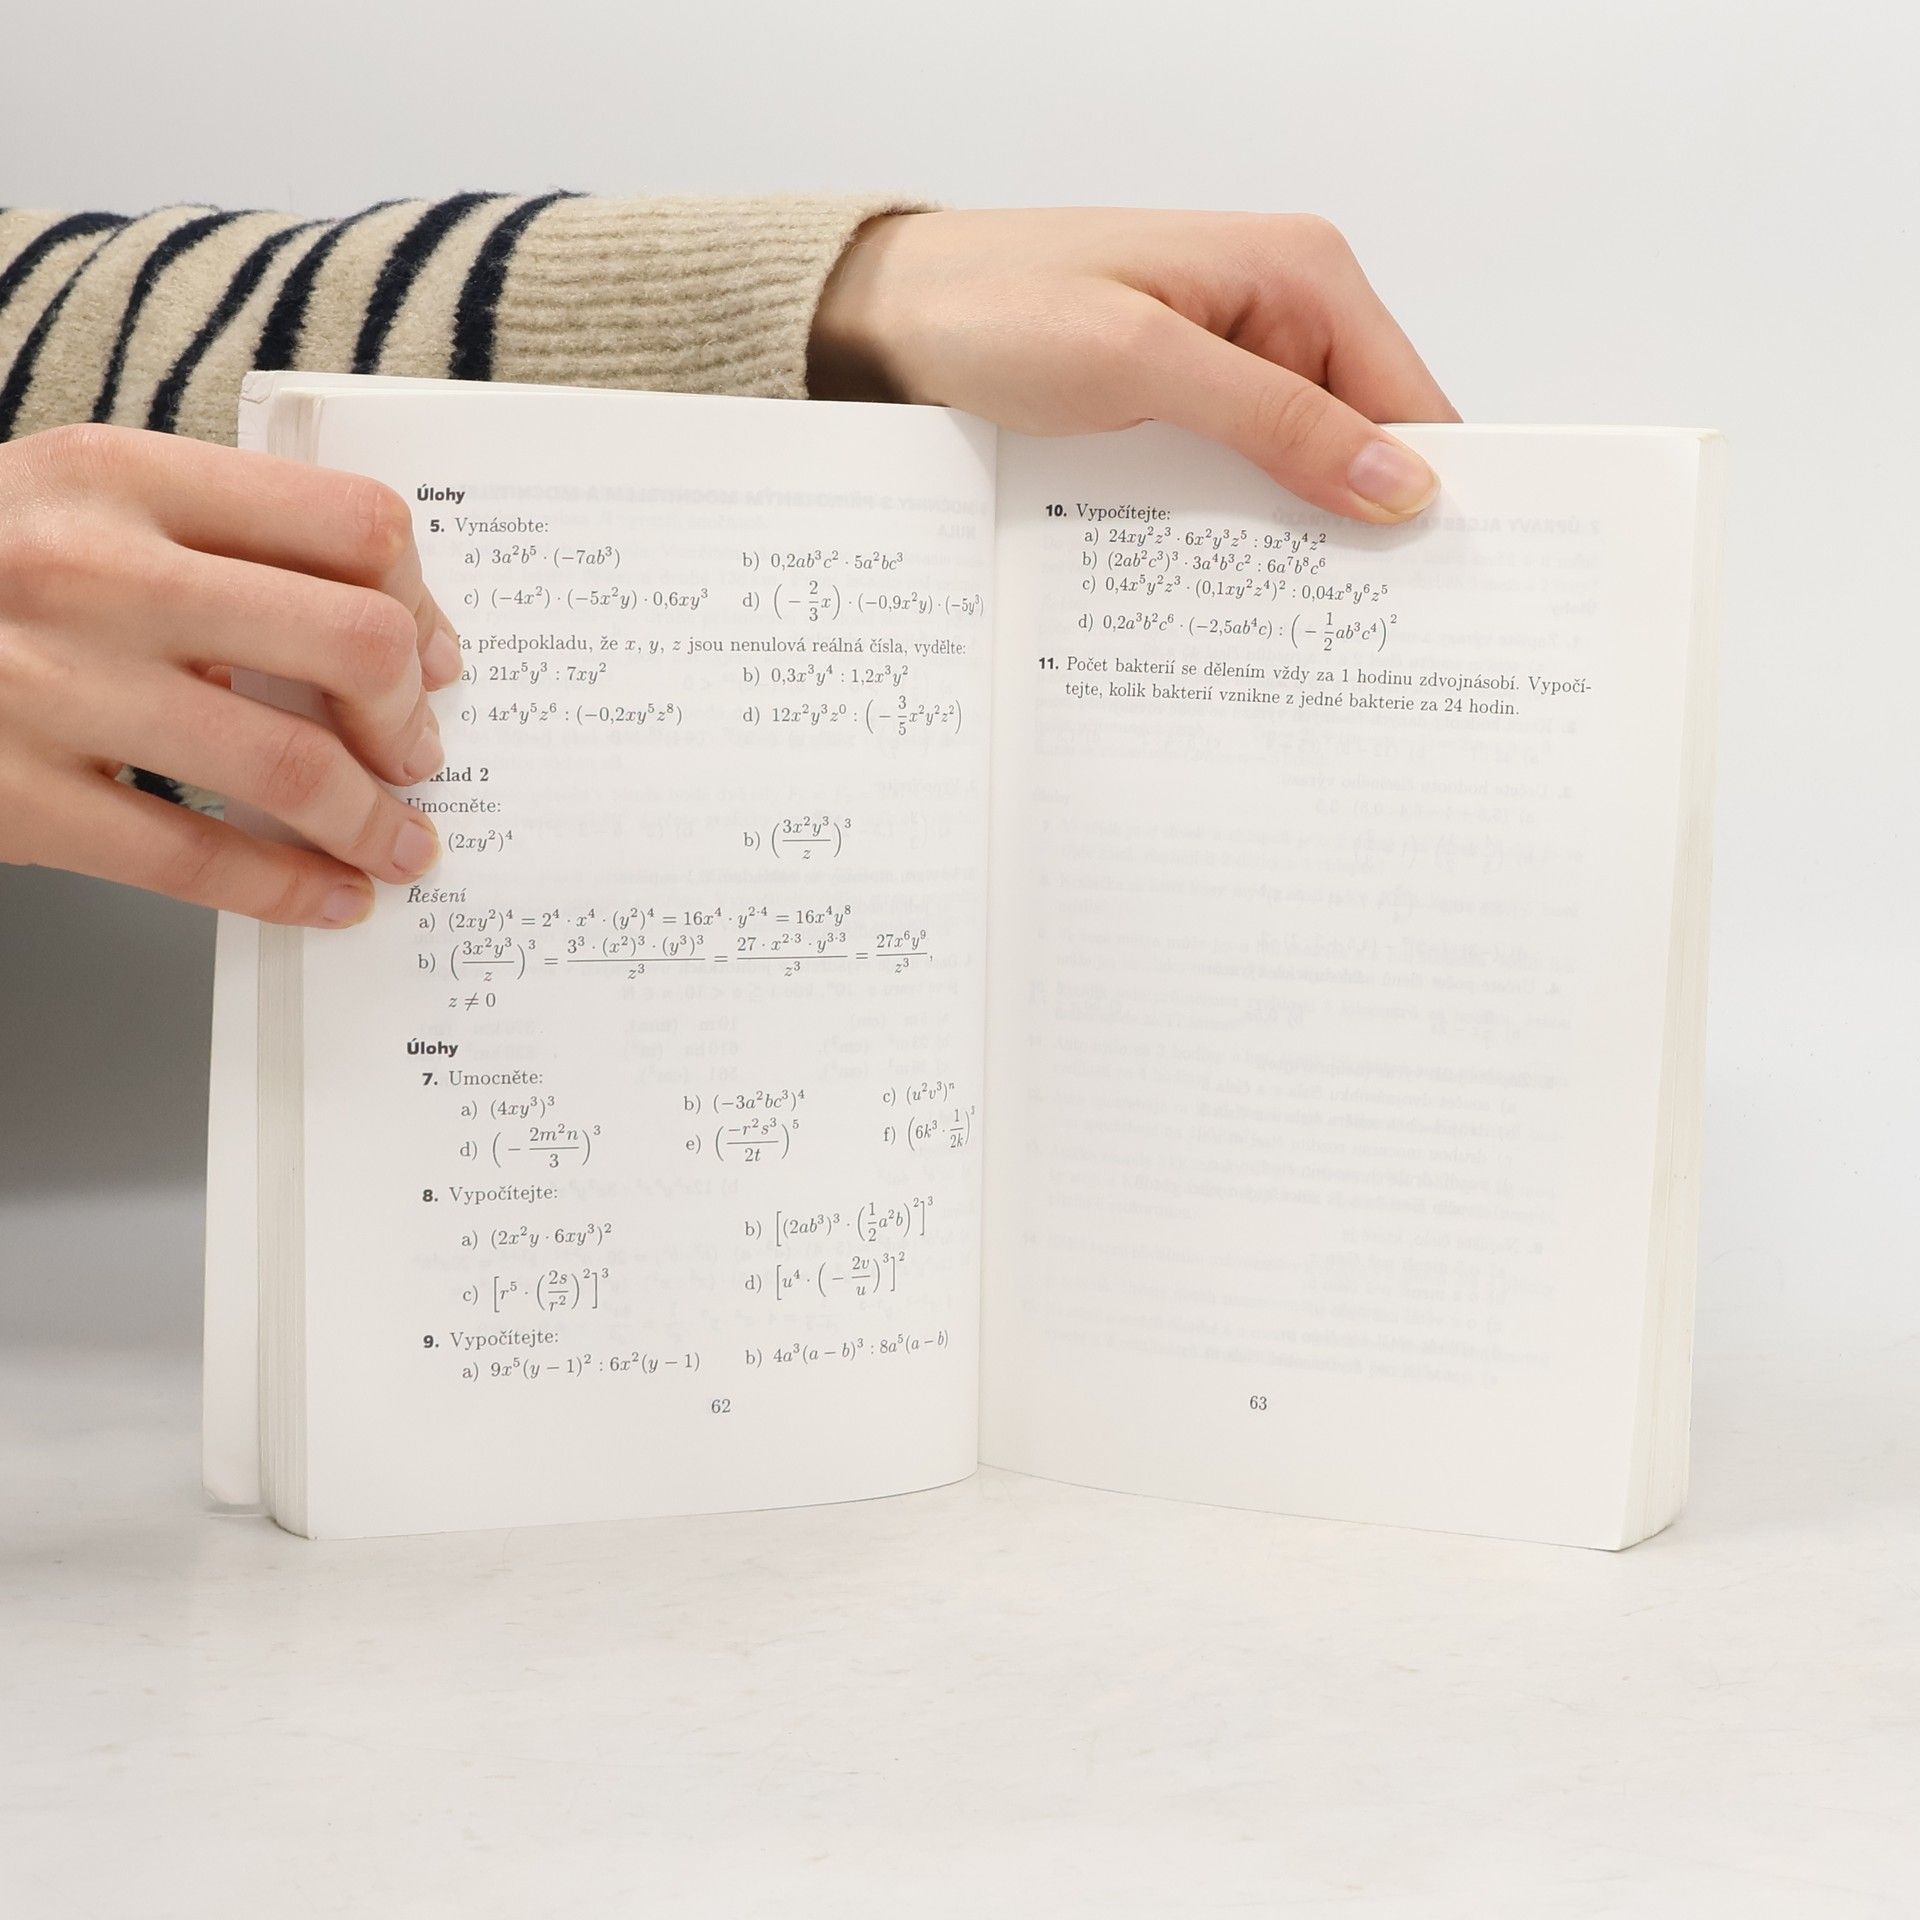 Úlohy
5. Vynásobte:
a) 3a²b⁵ · (−7ab³) b) 0,2ab³c² · 5a²bc³
c) (−4x²) · (−5x²y) · 0,6xy³ d) (−2/3x) · (−0,9x²y) · (−5y³)
předpokladu, že x, y, z jsou nenulová reálná čísla, vydělte:
a) 21x⁵y³ : 7xy² b) 0,3x³y⁴ : 1,2x³y²
c) 4x⁴y⁵z⁶ : (−0,2xy⁵z⁸) d) 12x²y³z⁰ : (−3/5x²y²z²)
klad 2
Umocněte:
(2xy²)⁴ b) (3x²y³/z)³
Řešení
a) (2xy²)⁴ = 2⁴ · x⁴ · (y²)⁴ = 16x⁴ · y²·⁴ = 16x⁴y⁸
b) (3x²y³/z)³ = 3³ · (x²)³ · (y³)³/z³ = 27 · x²·³ · y³·³/z³ = 27x⁶y⁹/z³,
z ≠ 0
Úlohy
7. Umocněte:
a) (4xy³)³ b) (−3a²bc³)⁴ c) (u²v³)ⁿ
d) (−2m²n/3)³ e) (−r²s³/2t)⁵ f) (6k³ · 1/2k)
8. Vypočítejte:
a) (2x²y · 6xy³)² b) [(2ab³)³ · (1/2a²b)²]³
c) [r⁵ · (2s/r²)²]³ d) [u⁴ · (−2v/u)³]²
9. Vypočítejte:
a) 9x⁵(y − 1)² : 6x²(y − 1) b) 4a³(a − b)³ : 8a⁵(a − b)
62
10. Vypočítejte:
a) 24xy²z³ · 6x²y³z⁵ : 9x³y⁴z²
b) (2ab²c³)³ · 3a⁴b³c² : 6a⁷b⁸c⁶
c) 0,4x⁵y²z³ · (0,1xy²z⁴)² : 0,04x⁸y⁶z⁵
d) 0,2a³b²c⁶ · (−2,5ab⁴c) : (−1/2ab³c⁴)²
11. Počet bakterií se dělením vždy za 1 hodinu zdvojnásobí. Vypočí-
tejte, kolik bakterií vznikne z jedné bakterie za 24 hodin.
63